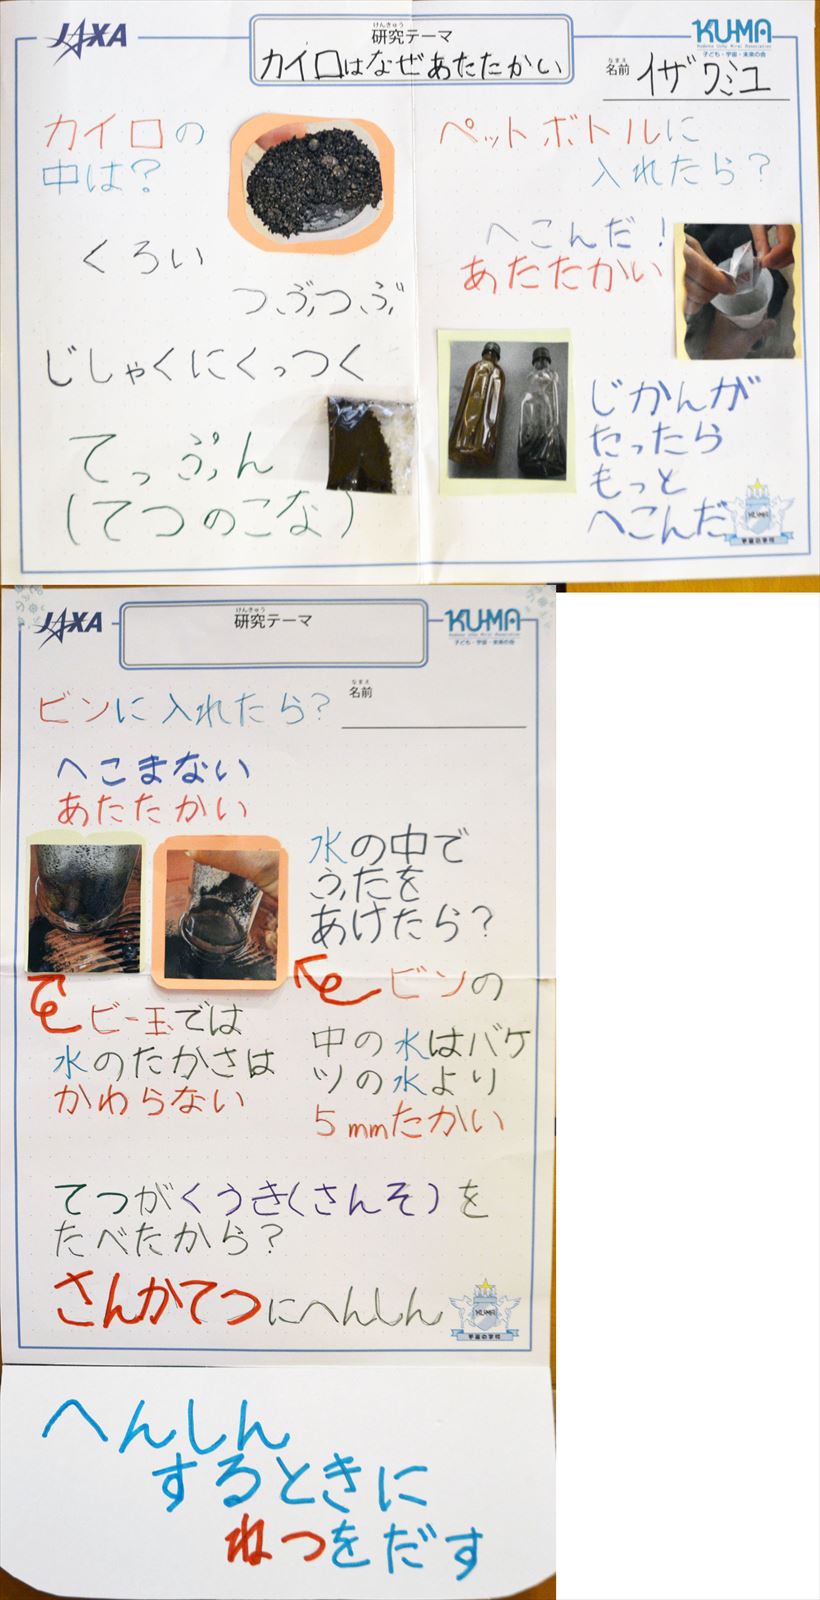 JAXA
けんきゅう
研究テーマ
カイロはなぜあたたかい
KU-MA
Kodomo Uchu Mirai Association
子ども・宇宙・未来の会
なまえ
名前 イザワミユ
カイロの
中は？
くろい
つぶつぶ
じしゃくにくっつく
てっぷん
(てつのこな)
ペットボトルに
入れたら？
へこんだ！
あたたかい
じかんが
たったら
もっと
へこんだ
KU-MA
宇宙の学校
JAXA
けんきゅう
研究テーマ
KU-MA
Kodomo Uchu Mirai Association
子ども・宇宙・未来の会
なまえ
名前
ビンに入れたら？
へこまない
あたたかい
水の中で
ふたを
あけたら？
ビー玉では
水のたかさは
かわらない
ビンの
中の水はバケ
ツの水より
5mmたかい
てつがくうき(さんそ)を
たべたから？
さんかてつにへんしん
KU-MA
宇宙の学校
へんしん
するときに
ねつをだす